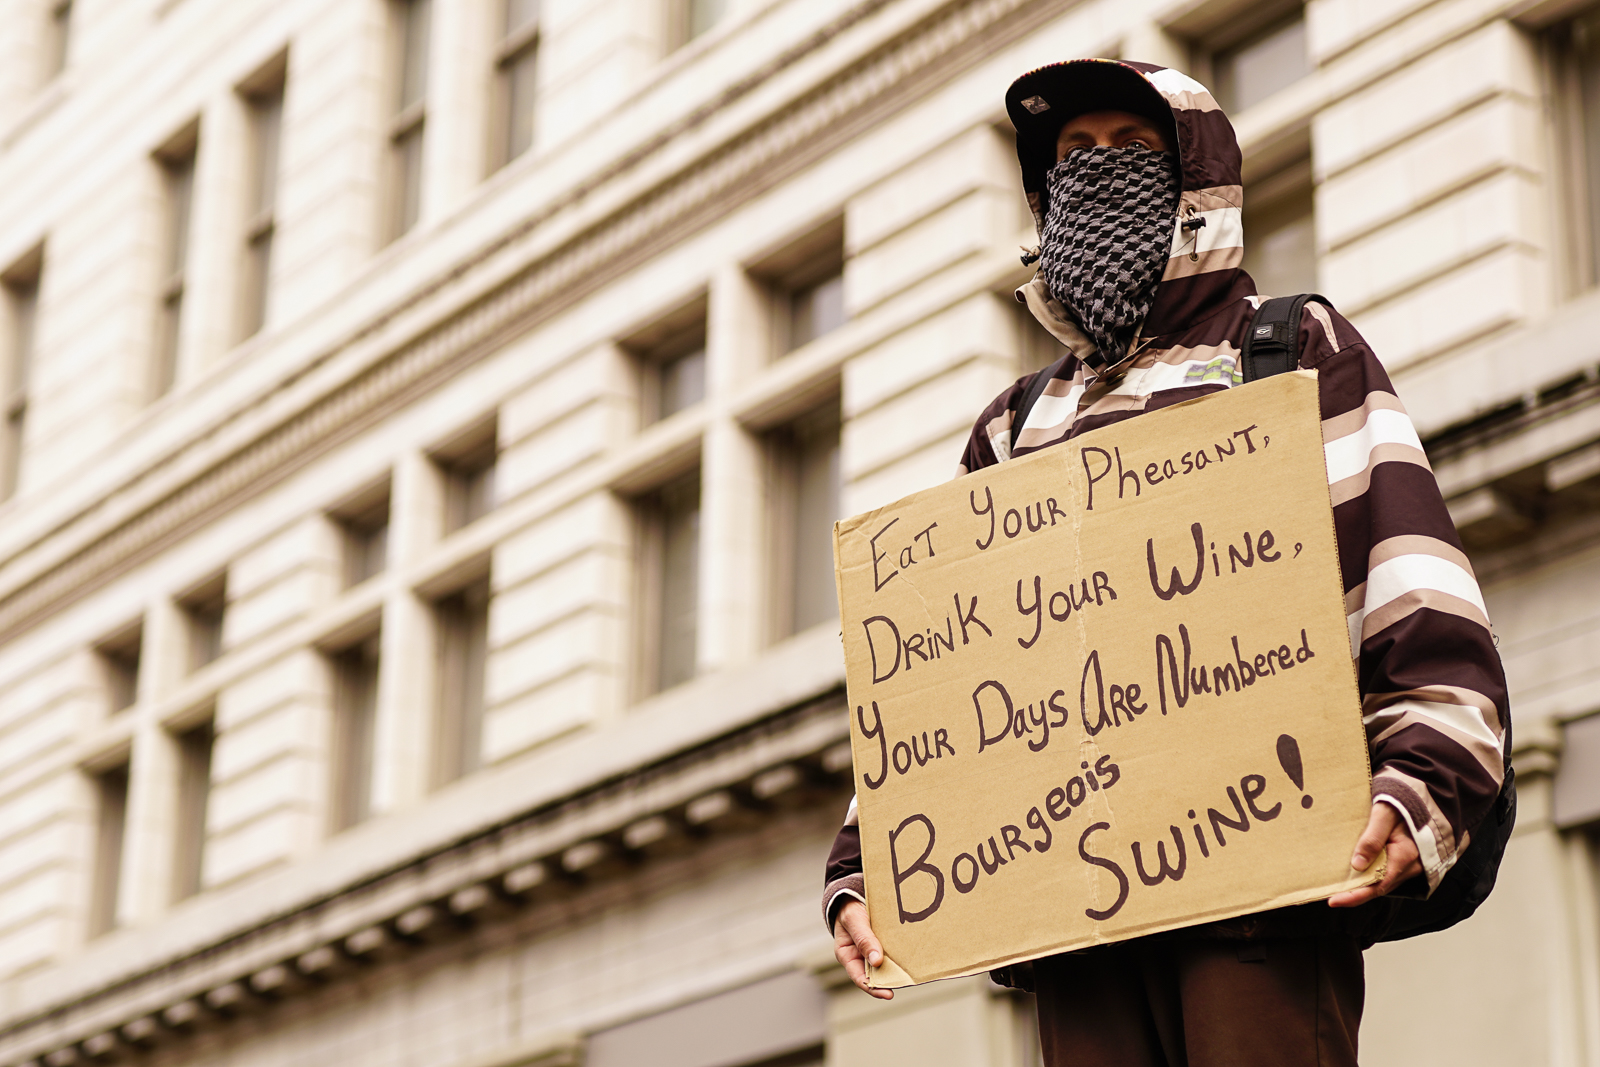 Eat Your Pheasant,
Drink Your Wine,
Your Days Are Numbered
Bourgeois
Swine!